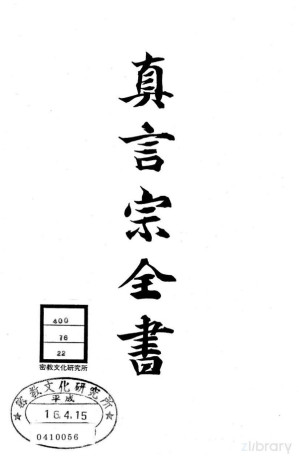 真言宗全書
400
76
22
密教文化研究所
密教文化研究所
平成
16.4.15
0410056
zlibrary